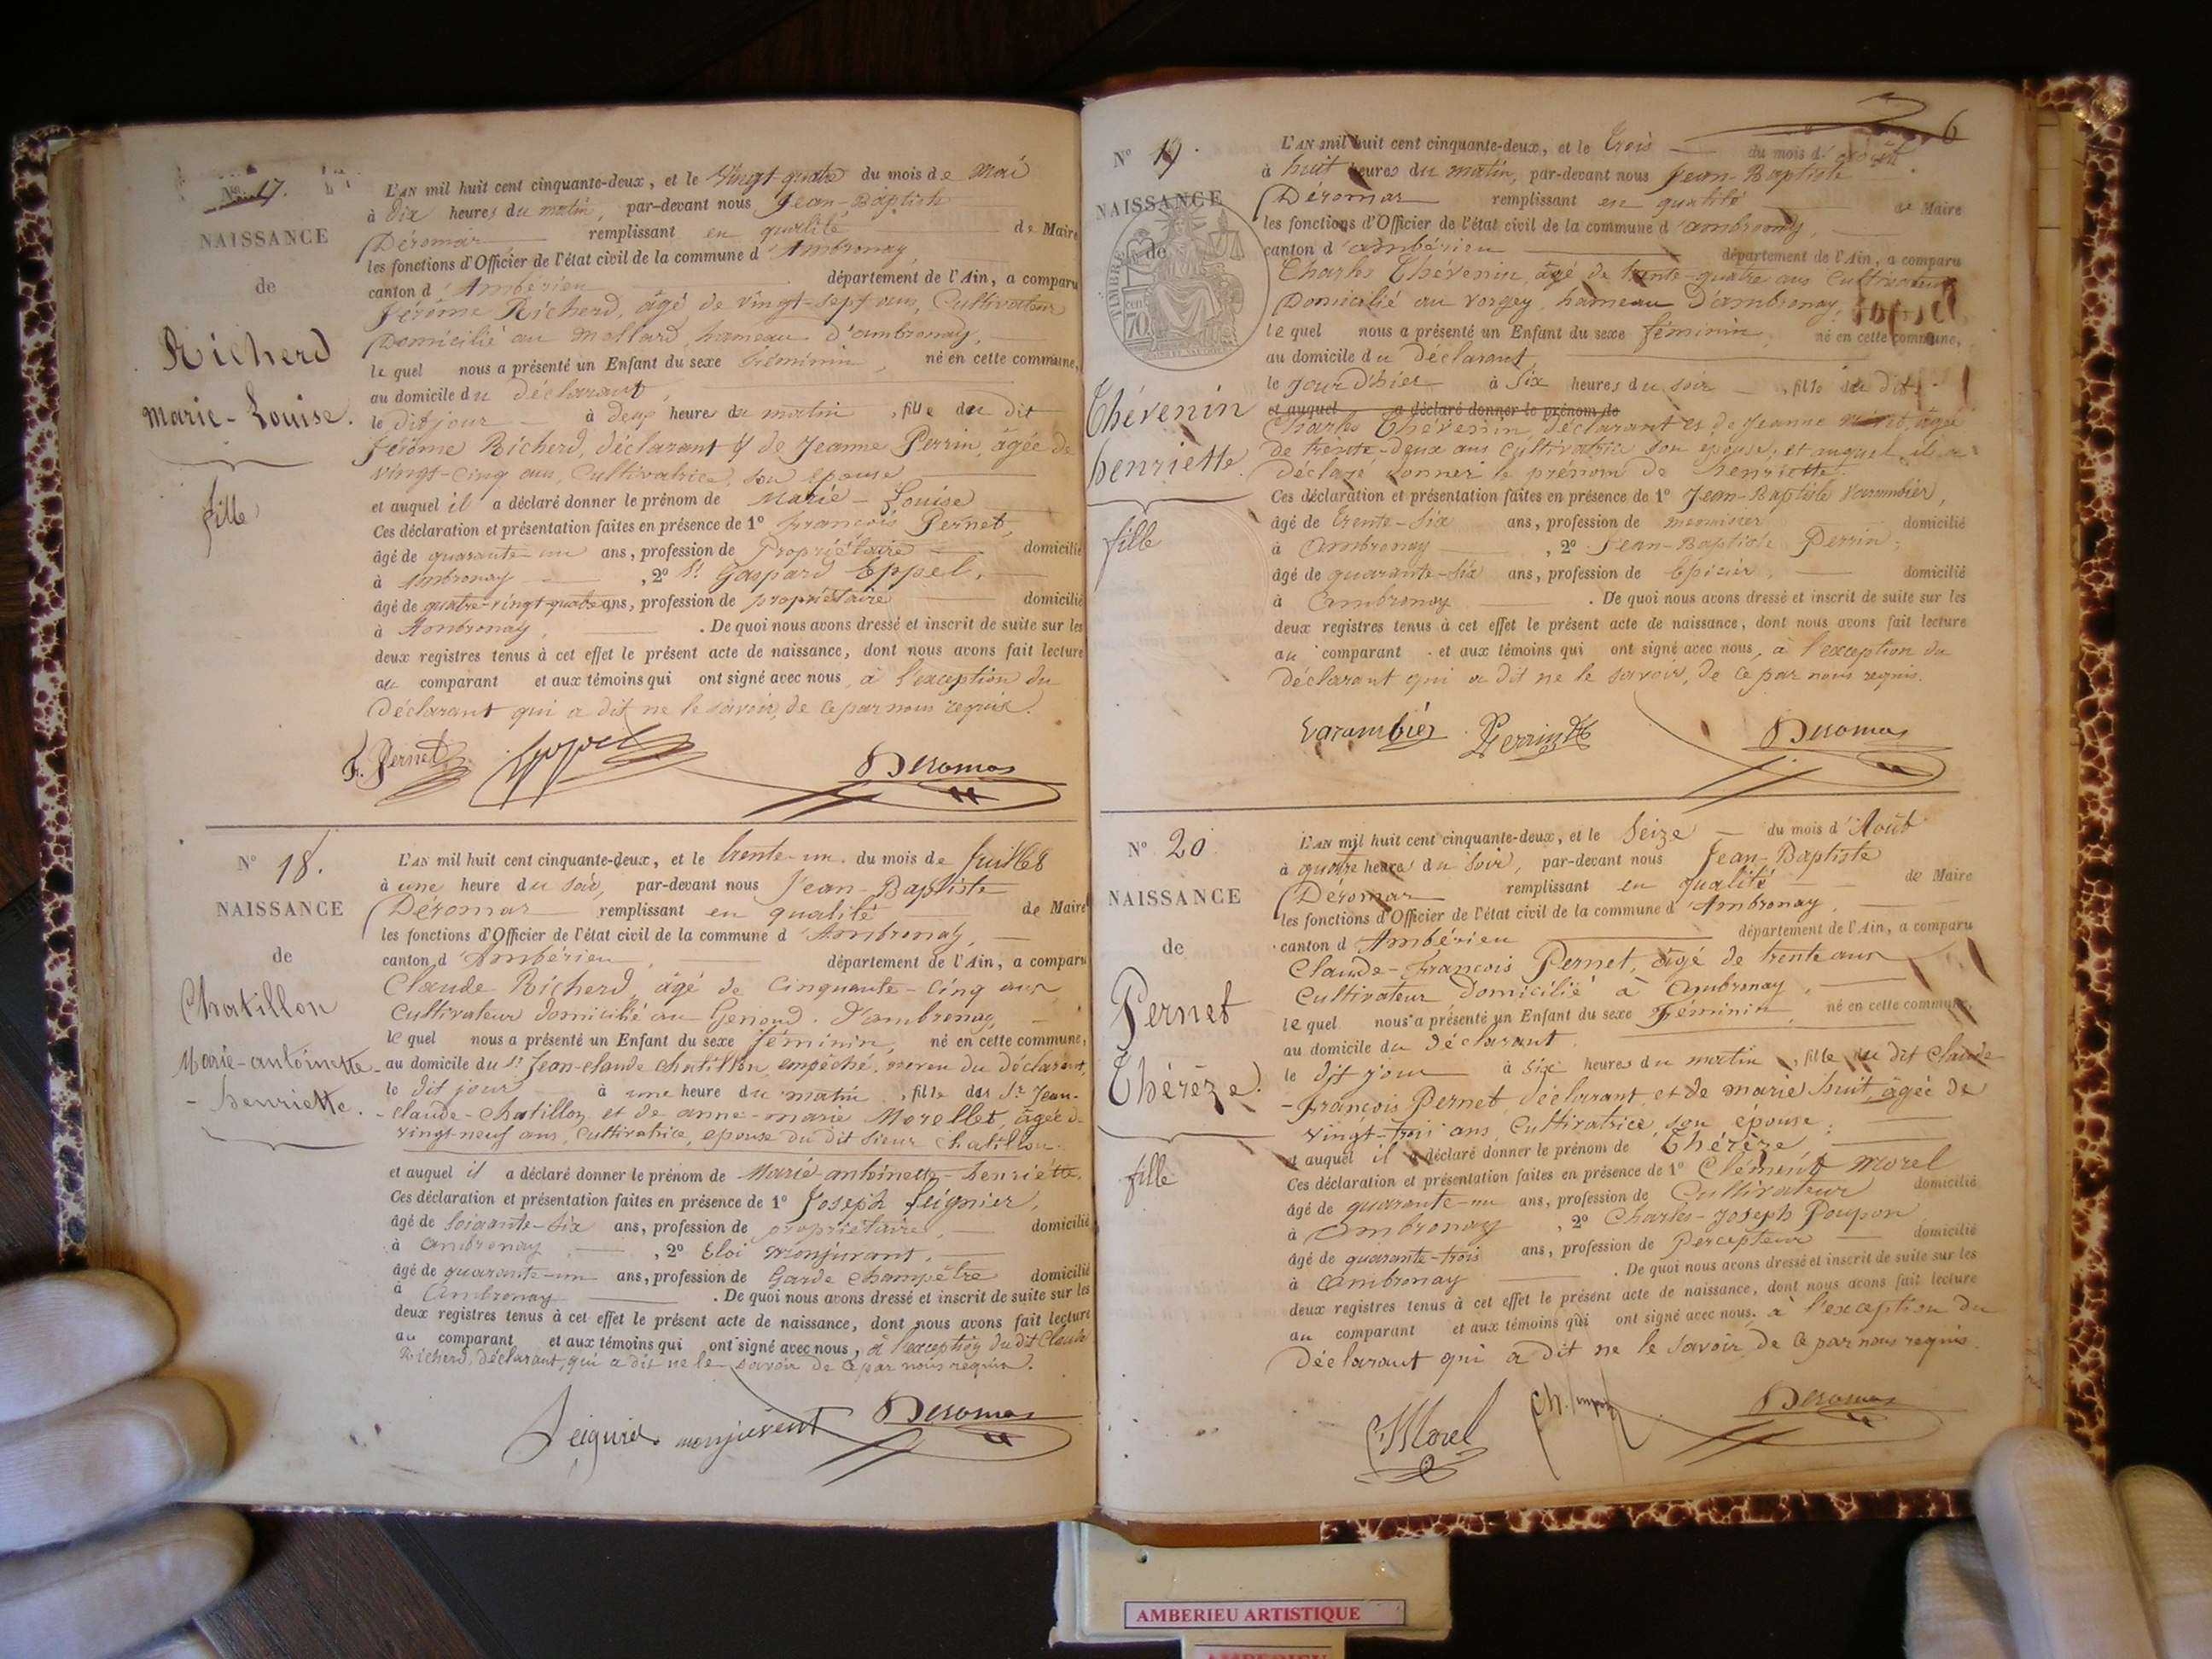 No 17.
NAISSANCE
de
Richerd
Marie-Louise.
fille
L'AN mil huit cent cinquante-deux, et le Vingt quatre du mois de mai
à dix heures du matin, par-devant nous Jean-Baptiste
Déromas remplissant en qualité de Maire
les fonctions d'Officier de l'état civil de la commune d'Ambronay
canton d'Ambérieu département de l'Ain, a comparu
Jérôme Richerd, âgé de vingt-sept ans, Cultivateur
Domicilié au mollard, hameau d'ambronay,
le quel nous a présenté un Enfant du sexe féminin, né en cette commune,
au domicile du déclarant,
le dit jour à deux heures du matin, fille du dit
Jérôme Richerd, déclarant & de Jeanne Perrin, âgée de
vingt-cinq ans, Cultivatrice, son épouse
et auquel il a déclaré donner le prénom de Marie-Louise
Ces déclaration et présentation faites en présence de 1º François Pernet,
âgé de quarante-un ans, profession de Propriétaire domicilié
à Ambronay, 2º Sr Gaspard Eppel,
âgé de quatre-vingt-quatre ans, profession de propriétaire domicilié
à Ambronay, . De quoi nous avons dressé et inscrit de suite sur les
deux registres tenus à cet effet le présent acte de naissance, dont nous avons fait lecture
au comparant et aux témoins qui ont signé avec nous, à l'exception du
Déclarant qui a dit ne le savoir, de ce par nous requis.
F. Pernet Deromas
No 18.
NAISSANCE
de
Chatillon
Marie-antoinette-
-henriette.
L'AN mil huit cent cinquante-deux, et le trente-un du mois de Juillet
à une heure du soir, par-devant nous Jean-Baptiste
Déromas remplissant en qualité de Maire
les fonctions d'Officier de l'état civil de la commune d'Ambronay,
canton d'Ambérieu, département de l'Ain, a comparu
Claude Richerd, âgé de Cinquante-Cinq ans,
Cultivateur domicilié au Genoud. d'ambronay,
le quel nous a présenté un Enfant du sexe féminin, né en cette commune,
au domicile du Sr Jean-claude Chatillon, empêché, neveu du déclarant,
le dit jour à une heure du matin, fille du Sr Jean-
-claude-Chatillon et de anne-marie Morellet, âgée de
vingt-neuf ans, Cultivatrice, epouse du dit sieur Chatillon.
et auquel il a déclaré donner le prénom de Marie-antoinette-henriette.
Ces déclaration et présentation faites en présence de 1º Joseph Seignier,
âgé de Soixante-six ans, profession de propriétaire, domicilié
à Ambronay, 2º Eloi Monjuvant,
âgé de quarante-un ans, profession de Garde champêtre domicilié
à Ambronay . De quoi nous avons dressé et inscrit de suite sur les
deux registres tenus à cet effet le présent acte de naissance, dont nous avons fait lecture
au comparant et aux témoins qui ont signé avec nous, à l'exception du dit Claude
Richerd, déclarant, qui a dit ne le savoir de ce par nous requis.
Seignier monjuvent Deromas
6
No 19.
NAISSANCE
de
TIMBRE
70
Thévenin
henriette.
fille
L'AN mil huit cent cinquante-deux, et le trois du mois d'août
à huit heures du matin, par-devant nous Jean-Baptiste
Déromas remplissant en qualité de Maire
les fonctions d'Officier de l'état civil de la commune d'ambronay,
canton d'ambérieu département de l'Ain, a comparu
Charles Thévenin, âgé de trente-quatre ans Cultivateur
Domicilié au vorgey, hameau d'ambronay,
le quel nous a présenté un Enfant du sexe féminin, né en cette commune,
au domicile du Déclarant,
le jour d'hier à Six heures du soir, fille du dit
et auquel a déclaré donner le prénom de
Charles Thévenin, déclarant et de Jeanne âgée
de trente-deux ans cultivatrice son épouse, et auquel il a
déclaré donner le prénom de henriette.
Ces déclaration et présentation faites en présence de 1º Jean-Baptiste Varambier,
âgé de trente-six ans, profession de menuisier domicilié
à Ambronay, 2º Jean-Baptiste Perrin,
âgé de quarante-six ans, profession de Epicier, domicilié
à Ambronay . De quoi nous avons dressé et inscrit de suite sur les
deux registres tenus à cet effet le présent acte de naissance, dont nous avons fait lecture
au comparant et aux témoins qui ont signé avec nous, à l'exception du
Déclarant qui a dit ne le savoir, de ce par nous requis.
Varambier Perrin Deromas
No 20
NAISSANCE
de
Pernet
Thérèze.
fille
L'AN mil huit cent cinquante-deux, et le Seize du mois d'Août
à quatre heures du soir, par-devant nous Jean-Baptiste
Déromas remplissant en qualité de Maire
les fonctions d'Officier de l'état civil de la commune d'Ambronay,
canton d'Ambérieu département de l'Ain, a comparu
Claude-François Pernet, âgé de trente ans
Cultivateur Domicilié à Ambronay,
le quel nous a présenté un Enfant du sexe Féminin, né en cette commune,
au domicile du déclarant,
le dit jour à six heures du matin, fille du dit Claude
-François Pernet, déclarant et de marie huit, âgée de
vingt-trois ans, Cultivatrice son épouse;
et auquel il a déclaré donner le prénom de Thérèze,
Ces déclaration et présentation faites en présence de 1º Clément Morel
âgé de quarante-un ans, profession de Cultivateur domicilié
à Ambronay, 2º Charles-Joseph Poupon
âgé de quarante-trois ans, profession de Percepteur domicilié
à Ambronay . De quoi nous avons dressé et inscrit de suite sur les
deux registres tenus à cet effet le présent acte de naissance, dont nous avons fait lecture
au comparant et aux témoins qui ont signé avec nous, à l'exception du
Déclarant qui a dit ne le savoir, de ce par nous requis.
C. Morel Deromas
AMBERIEU ARTISTIQUE
AMBERIEU